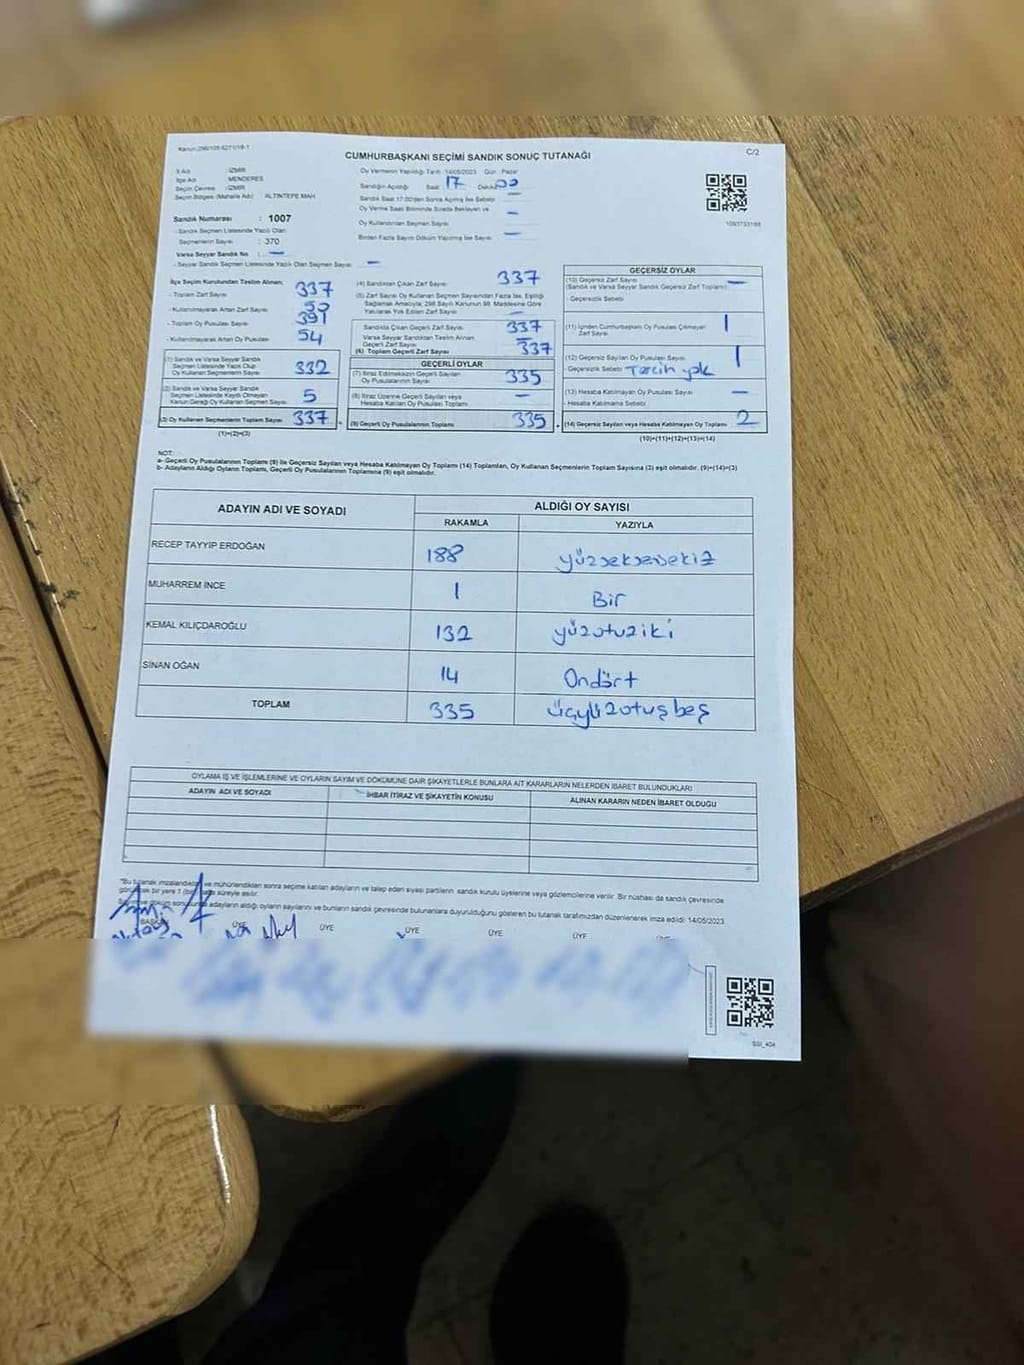 Kanun:298/105-6271/18-1
CUMHURBAŞKANI SEÇİMİ SANDIK SONUÇ TUTANAĞI
C/2
İl Adı : İZMİR
İlçe Adı : MENDERES
Seçim Çevresi : İZMİR
Seçim Bölgesi (Mahalle Adı) : ALTINTEPE MAH.
Sandık Numarası : 1007
- Sandık Seçmen Listesinde Yazılı Olan
Seçmenlerin Sayısı : 370
Varsa Seyyar Sandık No : —
- Seyyar Sandık Seçmen Listesinde Yazılı Olan Seçmen Sayısı : —
Oy Vermenin Yapıldığı Tarih :14/05/2023 Gün : Pazar
Sandığın Açıldığı Saat 17 Dakika 00
Sandık Saat 17:00'den Sonra Açılmış İse Sebebi —
Oy Verme Saati Bitiminde Sırada Bekleyen ve
Oy Kullandırılan Seçmen Sayısı —
Birden Fazla Sayım Döküm Yapılmış İse Sayısı —
1093753168
İlçe Seçim Kurulundan Teslim Alınan;
- Toplam Zarf Sayısı 337
- Kullanılmayarak Artan Zarf Sayısı 50
- Toplam Oy Pusulası Sayısı 391
- Kullanılmayarak Artan Oy Pusulası 54
(1) Sandık ve Varsa Seyyar Sandık
Seçmen Listesinde Yazılı Olup
Oy Kullanan Seçmenlerin Sayısı 332
(2) Sandık ve Varsa Seyyar Sandık
Seçmen Listesinde Kayıtlı Olmayan
Kanun Gereği Oy Kullanan Seçmen Sayısı 5
(3) Oy Kullanan Seçmenlerin Toplam Sayısı 337
(1)+(2)=(3)
(4) Sandıktan Çıkan Zarf Sayısı 337
(5) Zarf Sayısı Oy Kullanan Seçmen Sayısından Fazla İse, Eşitliği
Sağlamak Amacıyla; 298 Sayılı Kanunun 98. Maddesine Göre
Yakılarak Yok Edilen Zarf Sayısı —
Sandıkta Çıkan Geçerli Zarf Sayısı 337
Varsa Seyyar Sandıktan Teslim Alınan
Geçerli Zarf Sayısı —
(6) Toplam Geçerli Zarf Sayısı 337
GEÇERLİ OYLAR
(7) İtiraz Edilmeksizin Geçerli Sayılan
Oy Pusulalarının Sayısı 335
(8) İtiraz Üzerine Geçerli Sayılan veya
Hesaba Katılan Oy Pusulası Toplamı —
(9) Geçerli Oy Pusulalarının Toplamı 335
GEÇERSİZ OYLAR
(10) Geçersiz Zarf Sayısı
(Sandık ve Varsa Seyyar Sandık Geçersiz Zarf Toplamı) —
- Geçersizlik Sebebi
(11) İçinden Cumhurbaşkanı Oy Pusulası Çıkmayan
Zarf Sayısı 1
(12) Geçersiz Sayılan Oy Pusulası Sayısı 1
- Geçersizlik Sebebi Tercih yok
(13) Hesaba Katılmayan Oy Pusulası Sayısı —
- Hesaba Katılmama Sebebi
(14) Geçersiz Sayılan veya Hesaba Katılmayan Oy Toplamı 2
(10)+(11)+(12)+(13)=(14)
NOT:
a- Geçerli Oy Pusulalarının Toplamı (9) ile Geçersiz Sayılan veya Hesaba Katılmayan Oy Toplamı (14) Toplamları, Oy Kullanan Seçmenlerin Toplam Sayısına (3) eşit olmalıdır. (9)+(14)=(3)
b- Adayların Aldığı Oyların Toplamı, Geçerli Oy Pusulalarının Toplamına (9) eşit olmalıdır.
ADAYIN ADI VE SOYADI ALDIĞI OY SAYISI
RAKAMLA YAZIYLA
RECEP TAYYİP ERDOĞAN 188 yüzseksensekiz
MUHARREM İNCE 1 Bir
KEMAL KILIÇDAROĞLU 132 yüzotuziki
SİNAN OĞAN 14 Ondört
TOPLAM 335 üçyüzotuşbeş
OYLAMA İŞ VE İŞLEMLERİNE VE OYLARIN SAYIM VE DÖKÜMÜNE DAİR ŞİKAYETLERLE BUNLARA AİT KARARLARIN NELERDEN İBARET BULUNDUKLARI
ADAYIN ADI VE SOYADI İHBAR İTİRAZ VE ŞİKAYETİN KONUSU ALINAN KARARIN NEDEN İBARET OLDUĞU
"Bu tutanak imzalandıktan ve mühürlendikten sonra seçime katılan adayların ve talep eden siyasi partilerin sandık kurulu üyelerine veya gözlemcilerine verilir. Bir nüshası da sandık çevresinde
görülecek bir yere 1 (bir) hafta süreyle asılır.
Sayım ve döküm sonucunda adayların aldığı oyların sayılarını ve bunların sandık çevresinde bulunanlara duyurulduğunu gösteren bu tutanak tarafımızdan düzenlenerek imza edildi. 14/05/2023
BAŞKAN ÜYE ÜYE ÜYE ÜYE ÜYE